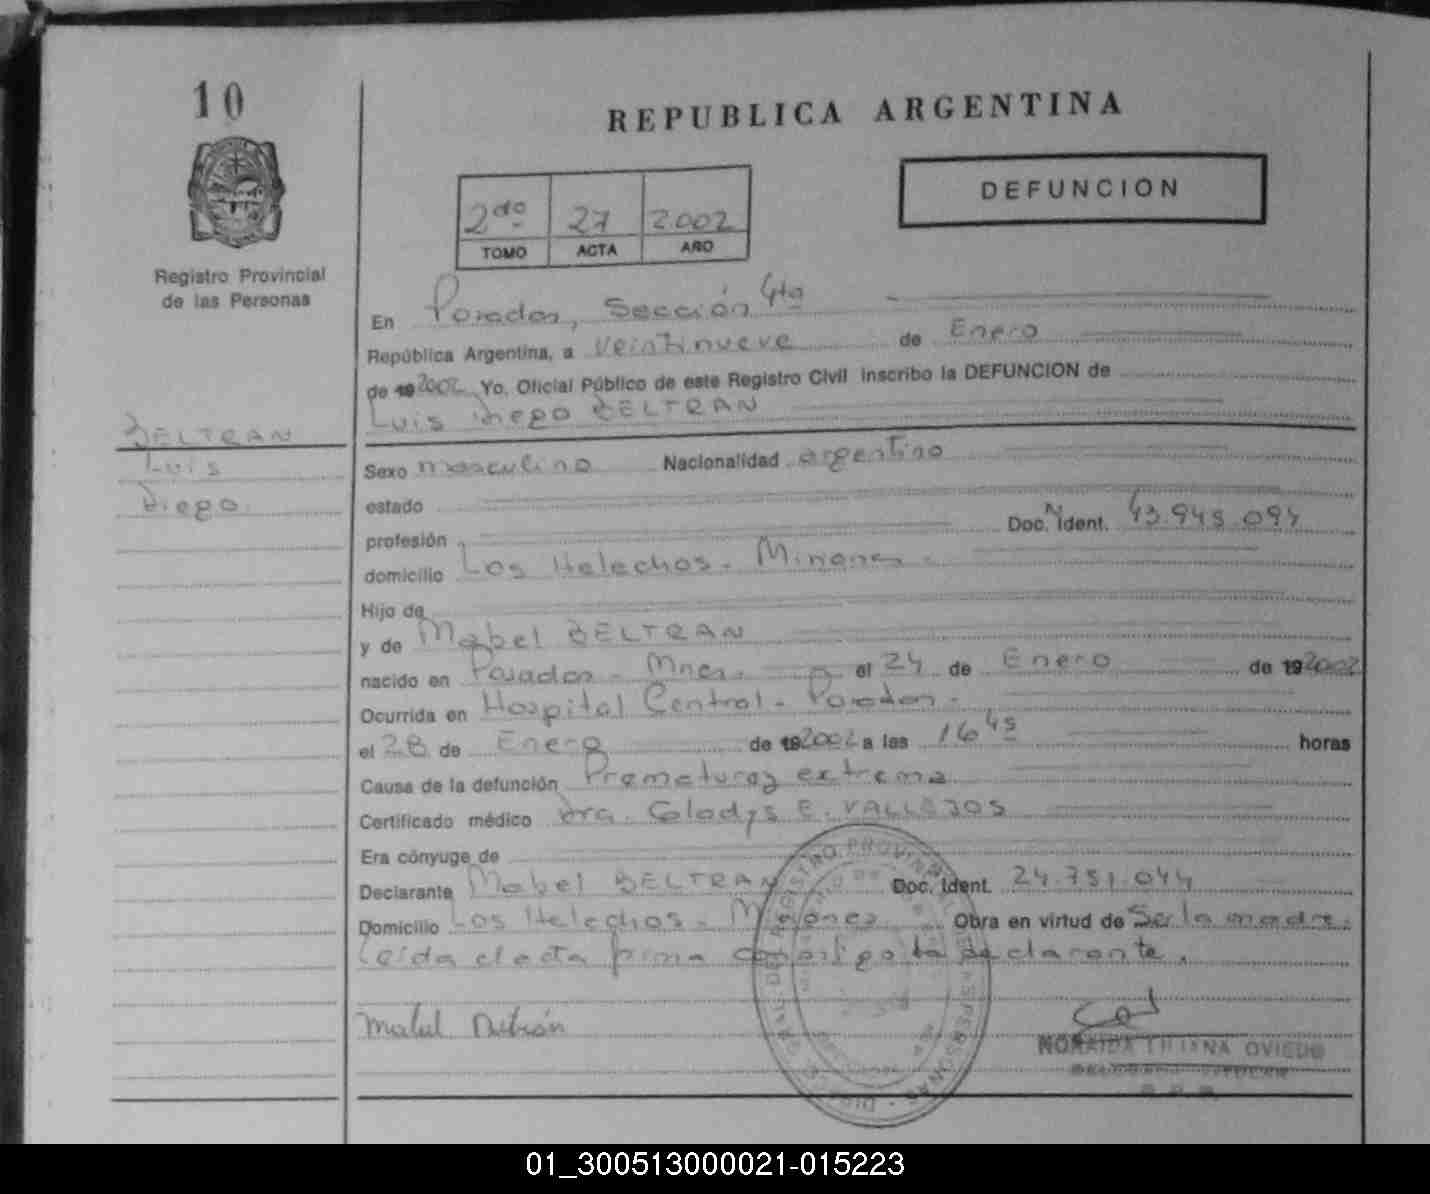 10
REPUBLICA ARGENTINA
DEFUNCION
2do 27 2.002
TOMO ACTA AÑO
Registro Provincial
de las Personas
En Posadas, Sección 4ta
República Argentina, a veintinueve de Enero
de 19 2002 Yo, Oficial Público de este Registro Civil inscribo la DEFUNCION de
Luis Diego BELTRAN
BELTRAN
Luis
Diego
Sexo masculino Nacionalidad argentino
estado
profesión Doc. N Ident. 43.945.094
domicilio Los Helechos - Misiones -
Hijo de
y de Mabel BELTRAN
nacido en Posadas - Mnes. el 24 de Enero de 19 2002
Ocurrida en Hospital Central - Posadas -
el 28 de Enero de 19 2002 a las 16 45 horas
Causa de la defunción Prematurez extrema
Certificado médico Dra. Gladys E. VALLEJOS
Era cónyuge de
Declarante Mabel BELTRAN Doc. Ident. 24.751.044
Domicilio Los Helechos - Misiones Obra en virtud de Ser la madre.
Leída el acta firma conmigo la declarante.
Mabel Beltrán
NORAIDA LILIANA OVIEDO
01_300513000021-015223